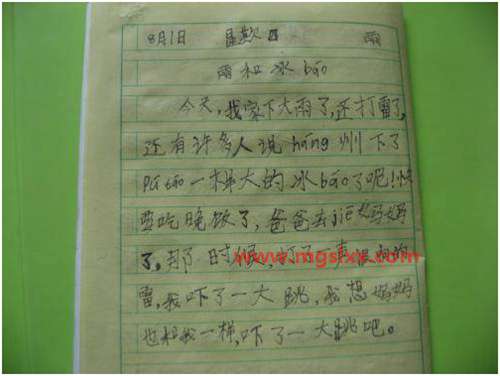 8月1日 星期日 雨
雨和冰bāo
今天,我家下大雨了,还打雷了,
还有许多人说háng州下了
Pú táo一样大的冰bāo了呢!快
要吃晚饭了,爸爸去jiē妈妈
了,那时候,打了一声很响的
雷,我吓了一大跳,我想妈妈
也和我一样,吓了一大跳吧。
www.mgslxx.com